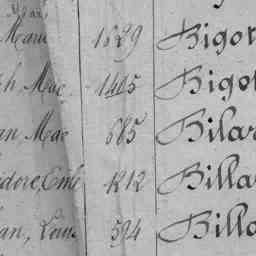 Marie 1629 Bigot
ph Mae 1405 Bigot
an Mae 685 Bilar
idore, Emle 1212 Billa
an, Louis 594 Billo